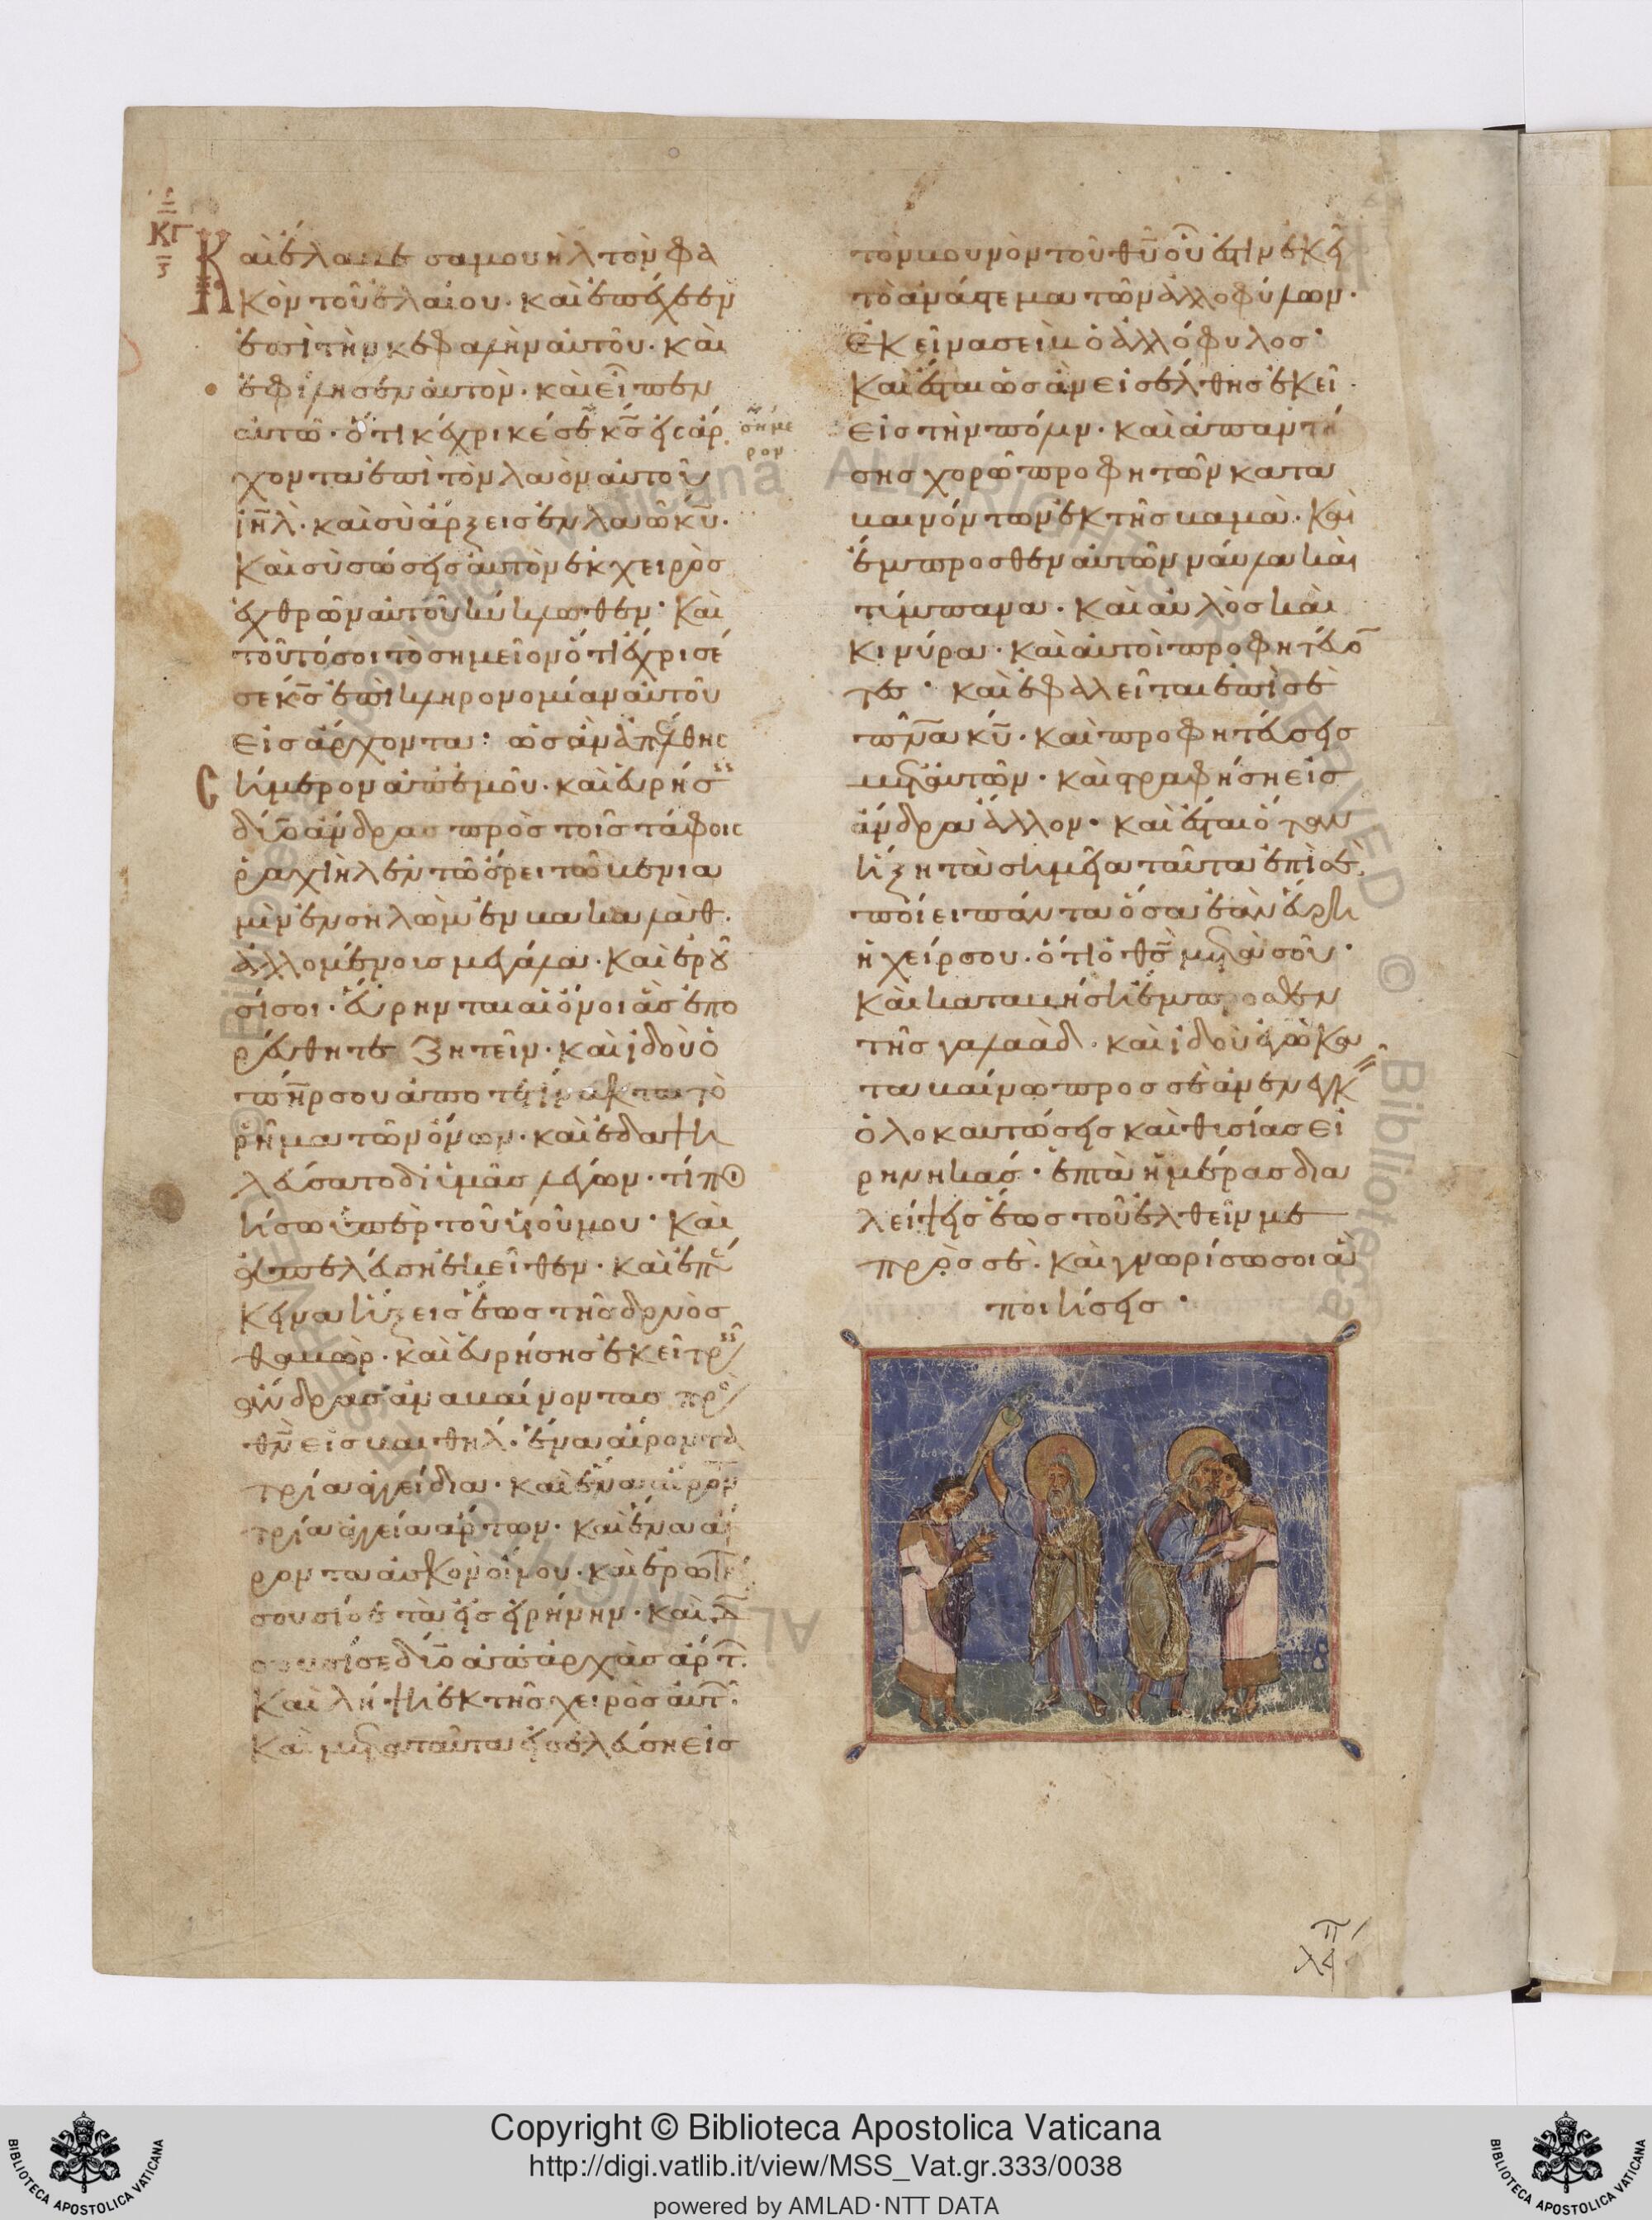 ΚΓ
Καὶ ἔλαβε σαμουὴλ τὸν φα
κὸν τοῦ ἐλαίου. καὶ ἐπέχεεν
ἐπὶ τὴν κεφαλὴν αὐτοῦ. καὶ
ἐφίλησεν αὐτὸν. καὶ εἶπεν
αὐτῶ. ὅτι κέχρικέ σε κ̅ς̅ εἰς ἄρ
σήμε
ρον
χοντα ἐπὶ τὸν λαὸν αὐτοῦ
ι̅η̅λ̅. καὶ σὺ ἄρξεις ἐν λαῶ κ̅υ̅.
Καὶ σὺ σώσεις αὐτὸν ἐκ χειρὸς
ἐχθρῶν αὐτοῦ κυκλωθεν. Καὶ
τοῦτό σοι τὸ σημεῖον ὅτι ἔχρισέ
σε κ̅ς̅ ἐπὶ κληρονομίαν αὐτοῦ
εἰς ἄρχοντα: ὡς ἂν ἀπέλθης
σήμερον ἀπ' ἐμοῦ. καὶ εὑρήσεις
δύο ἄνδρας πρὸς τοῖς τάφοις
ῥαχιὴλ ἐν τῶ ὄρει τῶ βενια
μὶν ἐν σηλὼμ ἐν βακαλὰθ.
ἁλλομένοις μεγάλα. Καὶ ἐροῦ
σί σοι. εὕρηνται αἱ ὄνοι ἃς ἐπο
ρεύθητε ζητεῖν. καὶ ἰδοὺ ὁ
π̅η̅ρ̅ σου ἀποτετίνακται τὸ
ῥῆμα τῶν ὄνων. καὶ ἐδαψι
λεύσατο δι' ὑμᾶς λέγων. τί ποι
ήσω ὑπὲρ τοῦ υἱοῦ μου. Καὶ
ἀπελεύση ἐκεῖθεν. καὶ ἐπέ
κεινα ἥξεις ἕως τῆς δρυὸς
θαβώρ. καὶ εὑρήσης ἐκεῖ τρεῖς
ἄνδρας ἀναβαίνοντας πρὸς
θ̅ν̅ εἰς βαιθήλ. ἕνα αἴροντα
τρία αἰγείδια. καὶ ἕνα αἴροντα
τρία ἀγεία ἄρτων. καὶ ἕνα αἴ
ροντα ἀσκὸν οἴνου. καὶ ἐρωτή
σουσί σε τὰ εἰς εἰρήνην. καὶ δώ
σουσί σε δύο ἀπαρχὰς ἄρτων.
Καὶ λήψη ἐκ τῆς χειρὸς αὐτῶν.
Καὶ μετὰ ταῦτα εἰσελεύση εἰς
τὸν βουνὸν τοῦ θ̅υ̅ οὗ ἐστὶν ἐκεῖ
τὸ ἀνάστεμα τῶν ἀλλοφύλων.
Ἐκεῖ νασεὶβ ὁ ἀλλόφυλος.
Καὶ ἔσται ὡς ἂν εἰσέλθης ἐκεῖ
εἰς τὴν πόλιν. καὶ ἀπαντή
σης χορῶ προφητῶν κατα
βαινόντων ἐκ τῆς βαμὰ. Καὶ
ἔμπροσθεν αὐτῶν νάβλα καὶ
τύμπανα. Καὶ αὐλὸς καὶ
κινύρα. καὶ αὐτοὶ προφητεύον
τες. καὶ ἐφαλεῖται ἐπὶ σὲ
π̅ν̅α̅ κ̅υ̅. καὶ προφητεύσεις
μετ' αὐτῶν. καὶ στραφήση εἰς
ἄνδρα ἄλλον. καὶ ἔσται ὅταν
ἥξη τὰ σημεῖα ταῦτα ἐπὶ σὲ.
ποίει πάντα ὅσα ἐὰν εὕρη
ἡ χείρ σου. ὅτι ὁ θ̅ς̅ μετὰ σοῦ.
Καὶ καταβήση ἔμπροσθεν
τῆς γαλαὰδ. καὶ ἰδοὺ ἐγὼ κα
ταβαίνω προς σὲ ἀνενεγκεῖν
ὁλοκαυτώσεις καὶ θυσίας εἰ
ρηνικάς. ἑπτὰ ἡμέρας δια
λείψεις ἕως τοῦ ἐλθεῖν με
πρὸς σέ. καὶ γνωρίσω σοι ἃ
ποιήσεις.
Copyright © Biblioteca Apostolica Vaticana
http://digi.vatlib.it/view/MSS_Vat.gr.333/0038
powered by AMLAD·NTT DATA
BIBLIOTECA APOSTOLICA VATICANA
BIBLIOTECA APOSTOLICA VATICANA